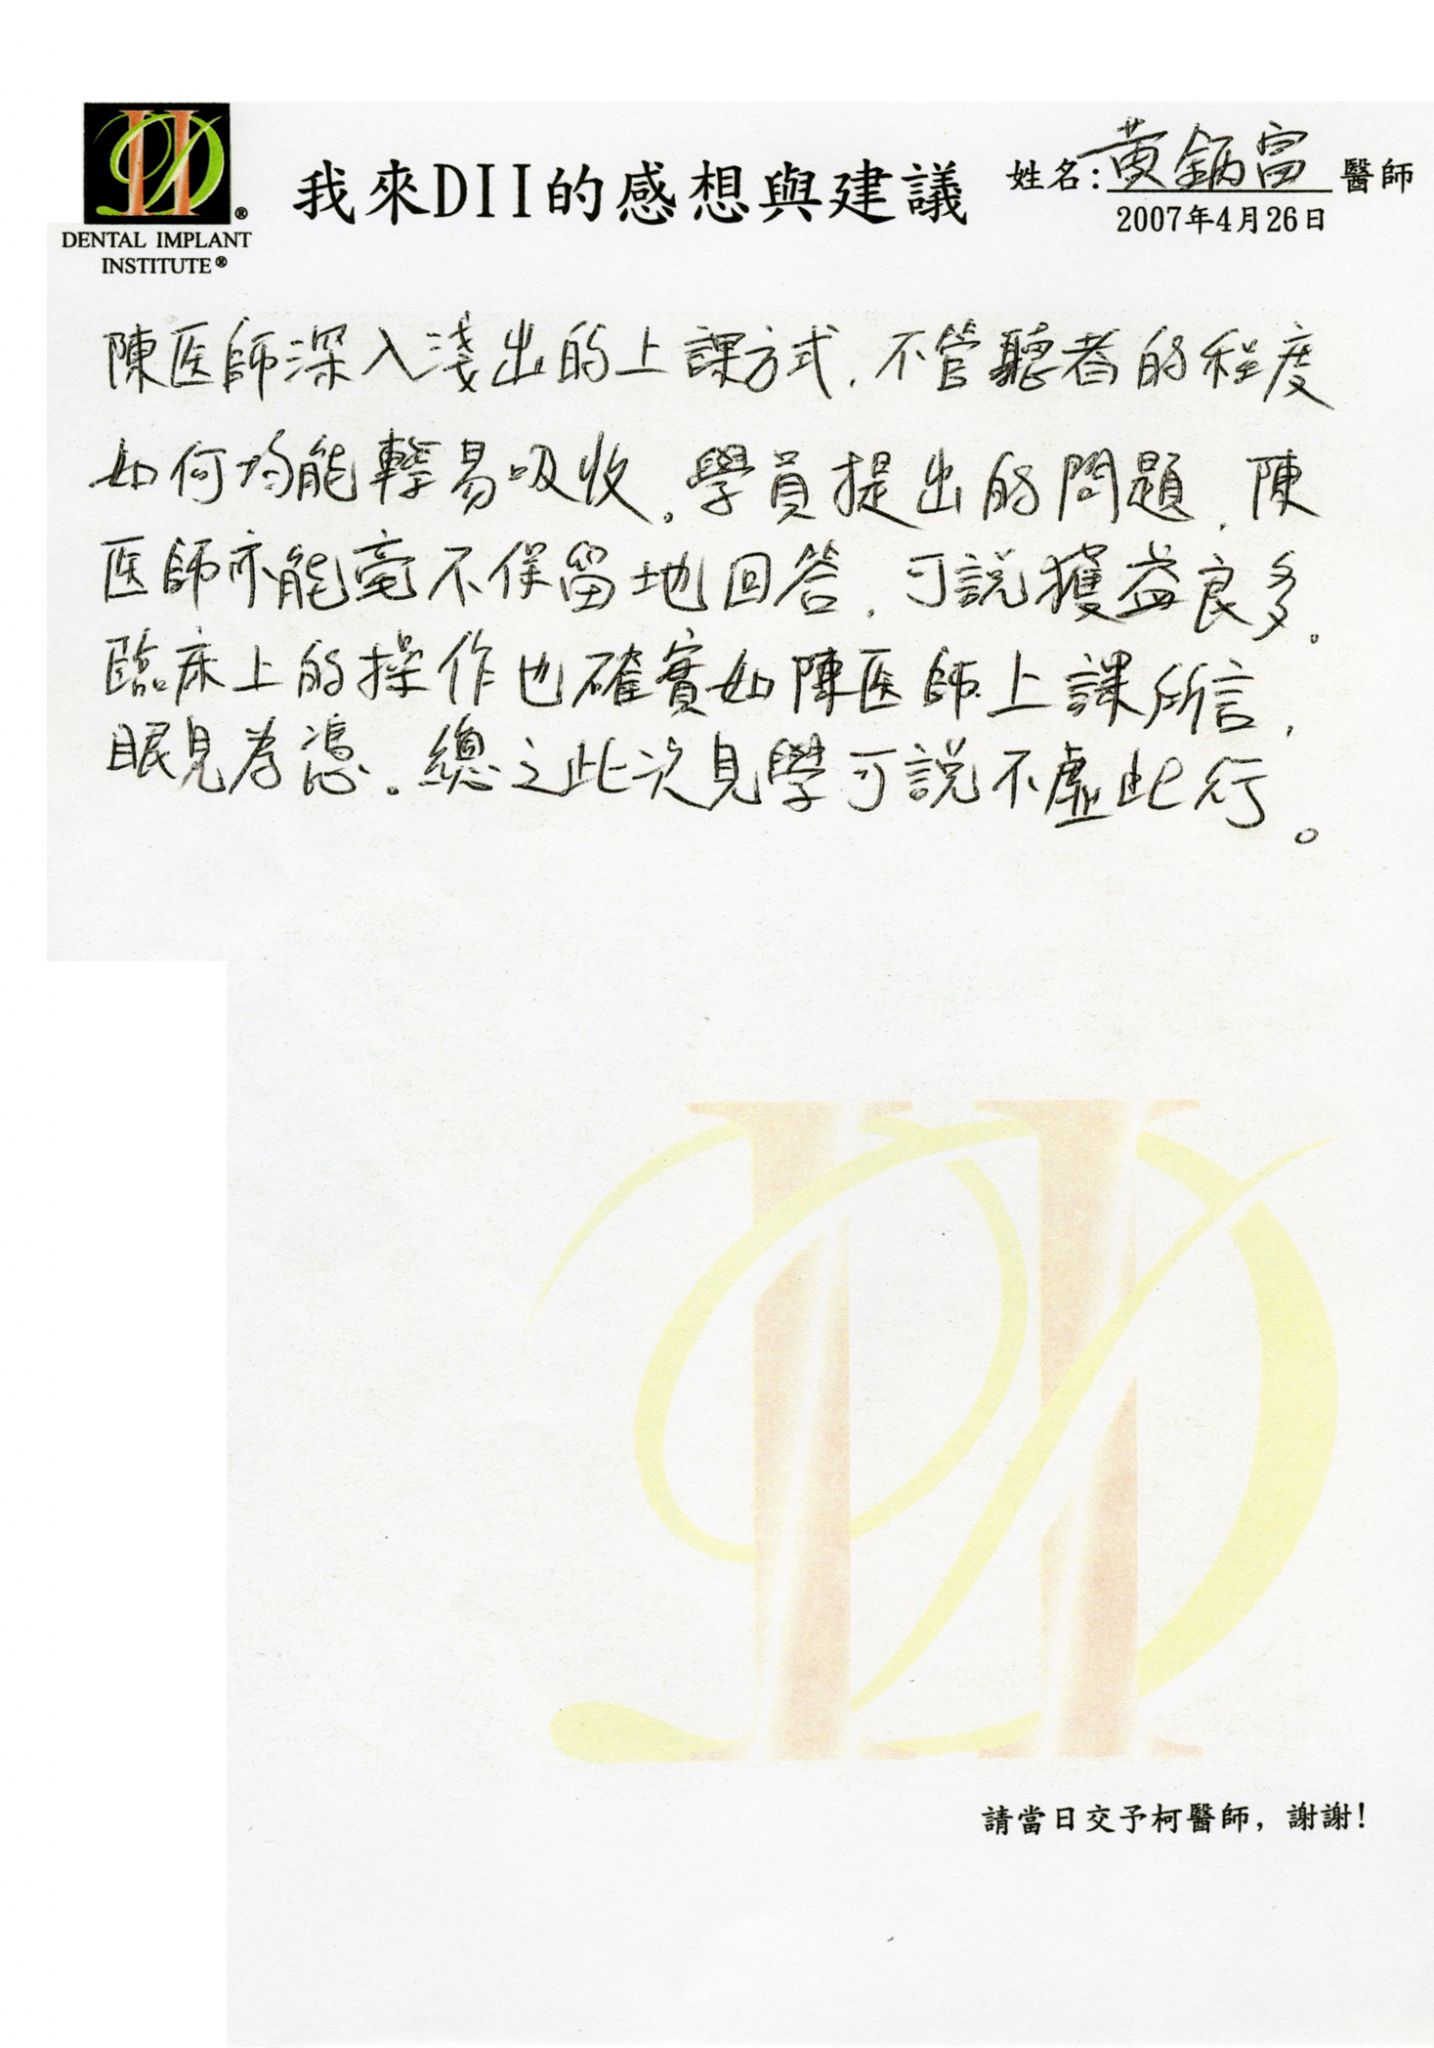 我來DII的感想與建議
姓名:黃鈵富 醫師
2007年4月26日
DENTAL IMPLANT
INSTITUTE®
陳医師深入淺出的上課方式，不管聽者的程度
如何均能輕易吸收。學員提出的問題，陳
医師亦能毫不保留地回答，可說獲益良多。
臨床上的操作也確實如陳医師上課所言，
眼見為憑。總之此次見學可說不虛此行。
請當日交予柯醫師，謝謝!